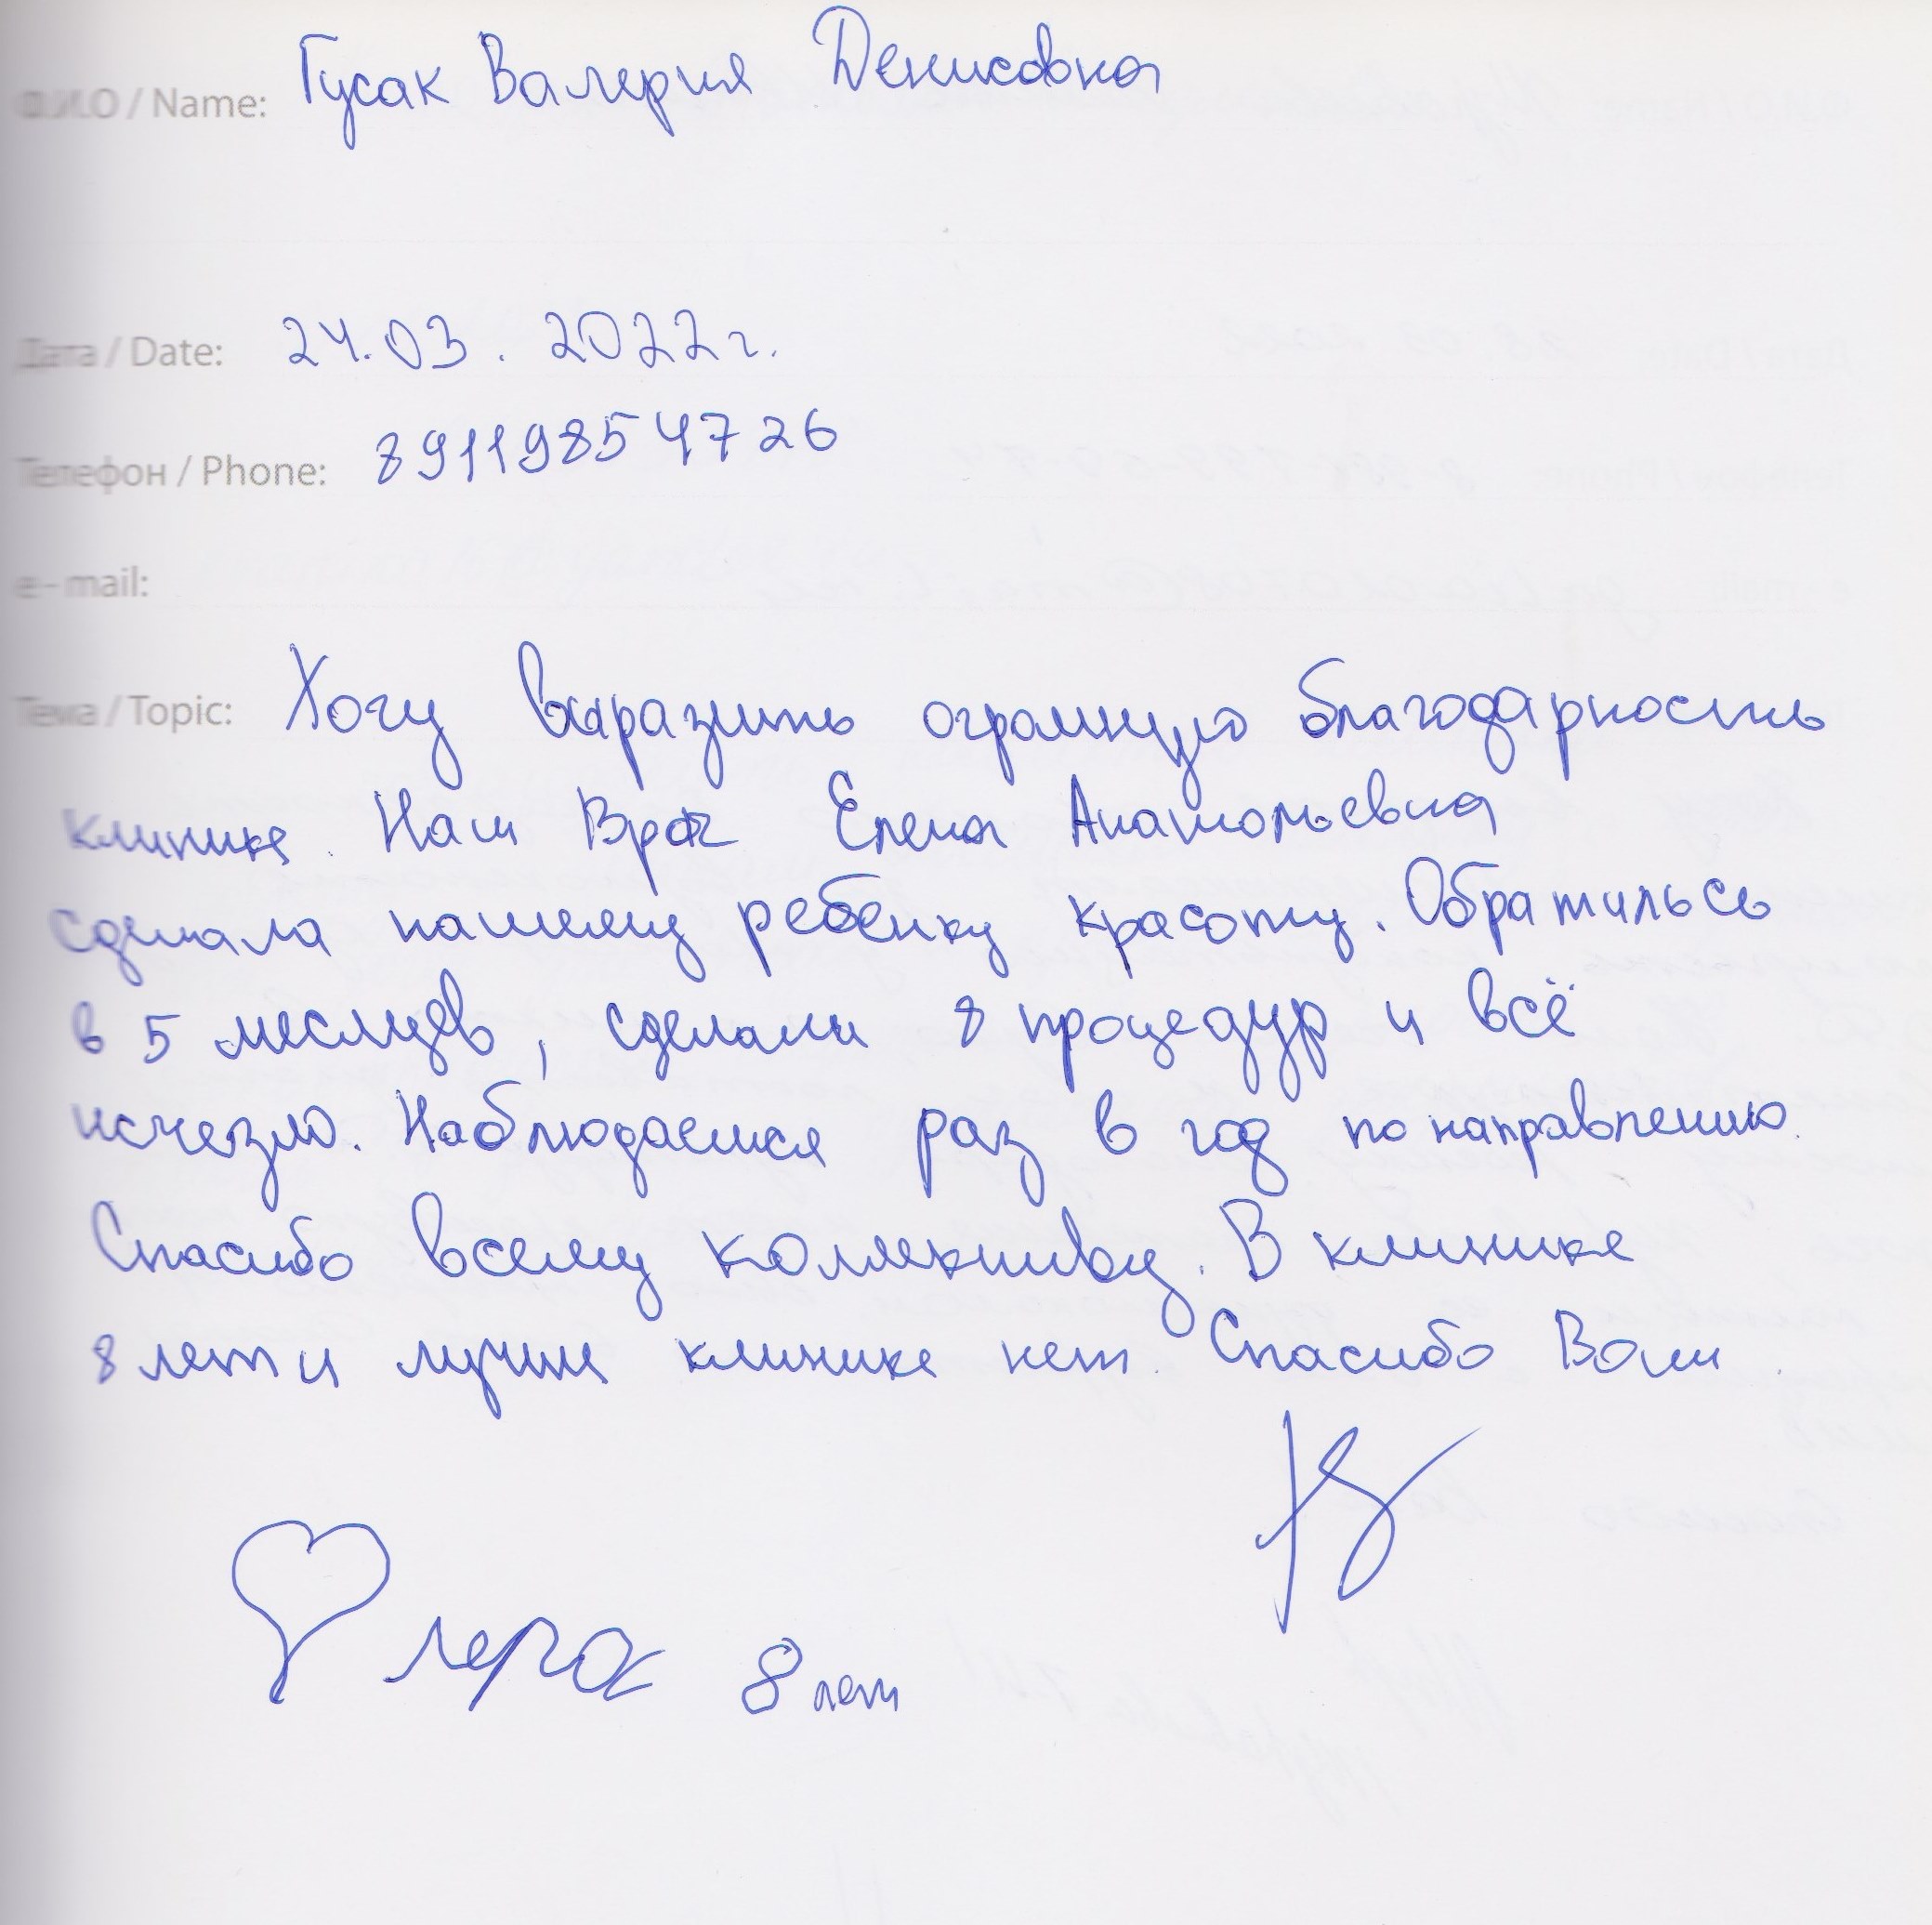 Ф.И.О / Name: Гусак Валерия Денисовна
Дата / Date: 24.03.2022г.
Телефон / Phone: 89119854726
e-mail:
Тема / Topic: Хочу выразить огромную благодарность
клинике. Наш Врач Елена Анатольевна
сделала нашему ребенку красоту. Обратились
в 5 месяцев, сделали 8 процедур и всё
исчезло. Наблюдаемся раз в год по направлению.
Спасибо всему коллективу. В клинике
8 лет и лучше клинике нет. Спасибо Вам.
лера 8 лет